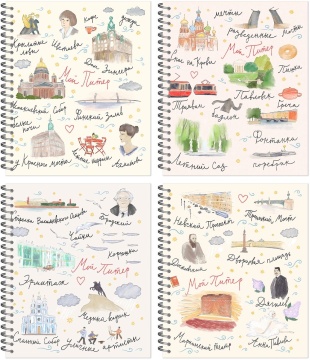 кофе
дождь
Крылатые львы
Цветаева
Дом Зингера
Мой Питер
Исаакиевский Собор
Белые ночи
Финский залив
у Красного моста
Ахматова
мечты
разведенные мосты
Мой Питер
Спас на Крови
Пышка
Трамвай
Павловск
Греча
Фонтанка
Летний Сад
поребрик
Стрелка Васильевского острова
Бродский
Чайка
Эрмитаж
Мой Питер
Медный всадник
Смольный Собор
Уличные музыканты
Невский Проспект
Троицкий Мост
Достоевский
Дворцовая площадь
Мой Питер
Дягилев
Мариинский театр
Анна Павлова